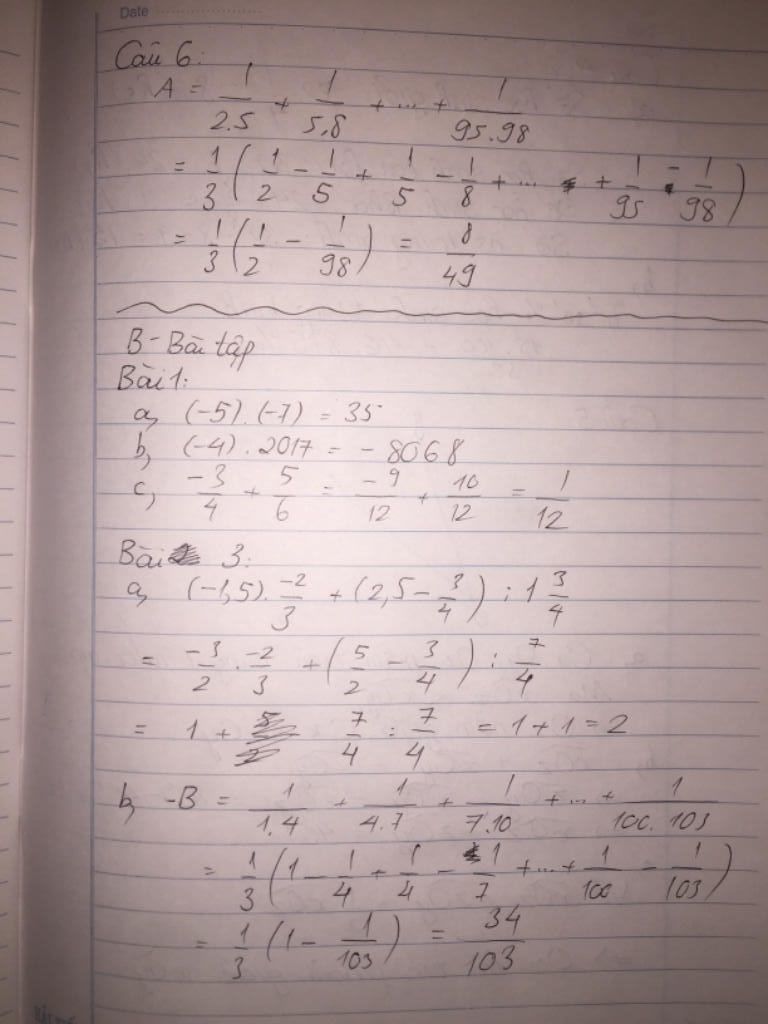 Date
Câu 6:
A = 1/2.5 + 1/5.8 + ... + 1/95.98
= 1/3 (1/2 - 1/5 + 1/5 - 1/8 + ... + 1/95 - 1/98)
= 1/3 (1/2 - 1/98) = 8/49
B - Bài tập
Bài 1:
a, (-5).(-7) = 35
b, (-4).2017 = -8068
c, -3/4 + 5/6 = -9/12 + 10/12 = 1/12
Bài 3:
a, (-1,5).-2/3 + (2,5 - 3/4) : 1 3/4
= -3/2 . -2/3 + (5/2 - 3/4) : 7/4
= 1 + 7/4 : 7/4 = 1 + 1 = 2
b, -B = 1/1.4 + 1/4.7 + 1/7.10 + ... + 1/100.103
= 1/3 (1 - 1/4 + 1/4 - 1/7 + ... + 1/100 - 1/103)
= 1/3 (1 - 1/103) = 34/103